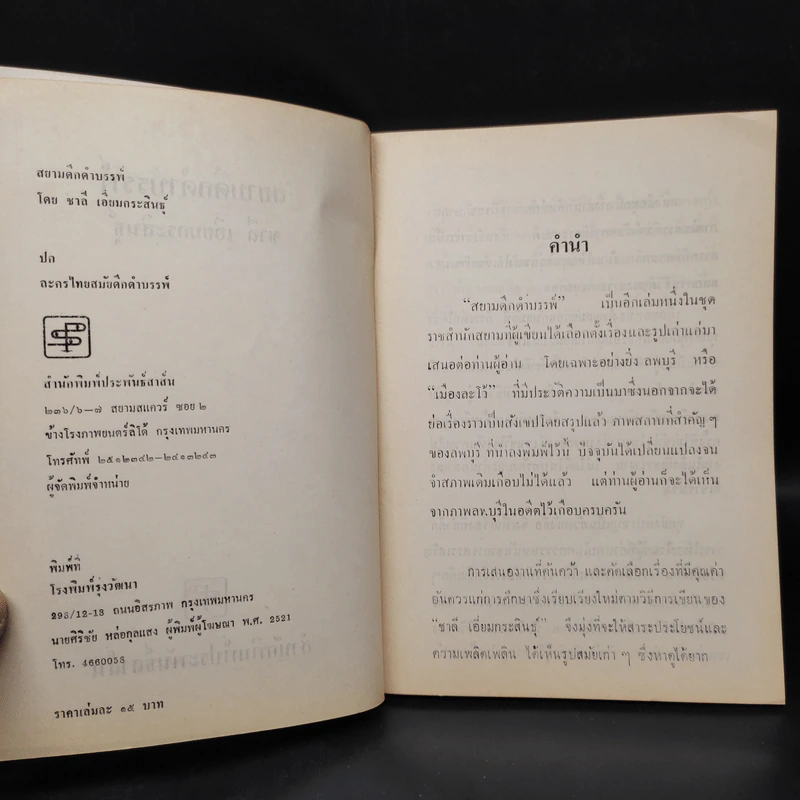 สยามดึกดำบรรพ์
โดย ชาลี เอี่ยมกระสินธุ์
ปก
ละครไทยสมัยดึกดำบรรพ์
สำนักพิมพ์ประพันธ์สาส์น
๒๓๖/๖-๗ สยามสแควร์ ซอย ๒
ข้างโรงภาพยนตร์ลิโด้ กรุงเทพมหานคร
โทรศัพท์ ๒๕๑๒๓๔๒-๒๔๑๓๒๔๓
ผู้จัดพิมพ์จำหน่าย
พิมพ์ที่
โรงพิมพ์รุ่งวัฒนา
293/12-13 ถนนอิสรภาพ กรุงเทพมหานคร
นายศิริชัย หล่อกุลแสง ผู้พิมพ์ผู้โฆษณา พ.ศ. 2521
โทร. 4660053
ราคาเล่มละ ๑๕ บาท
คำนำ
“สยามดึกดำบรรพ์” เป็นอีกเล่มหนึ่งในชุด
ราชสำนักสยามที่ผู้เขียนได้เลือกตั้งเรื่องและรูปเก่าแก่มา
เสนอต่อท่านผู้อ่าน โดยเฉพาะอย่างยิ่ง ลพบุรี หรือ
“เมืองละโว้” ที่มีประวัติความเป็นมาซึ่งนอกจากจะได้
ย่อเรื่องราวเป็นสังเขปโดยสรุปแล้ว ภาพสถานที่สำคัญ ๆ
ของลพบุรี ที่นำลงพิมพ์ไว้นี้ ปัจจุบันได้เปลี่ยนแปลงจน
จำสภาพเดิมเกือบไม่ได้แล้ว แต่ท่านผู้อ่านก็จะได้เห็น
จากภาพลพบุรีในอดีตไว้เกือบครบครัน
การเสนองานที่ค้นคว้า และคัดเลือกเรื่องที่มีคุณค่า
อันควรแก่การศึกษาซึ่งเรียบเรียงใหม่ตามวิธีการเขียนของ
“ชาลี เอี่ยมกระสินธุ์” จึงมุ่งที่จะให้สาระประโยชน์และ
ความเพลิดเพลิน ได้เห็นรูปสมัยเก่า ๆ ซึ่งหาดูได้ยาก